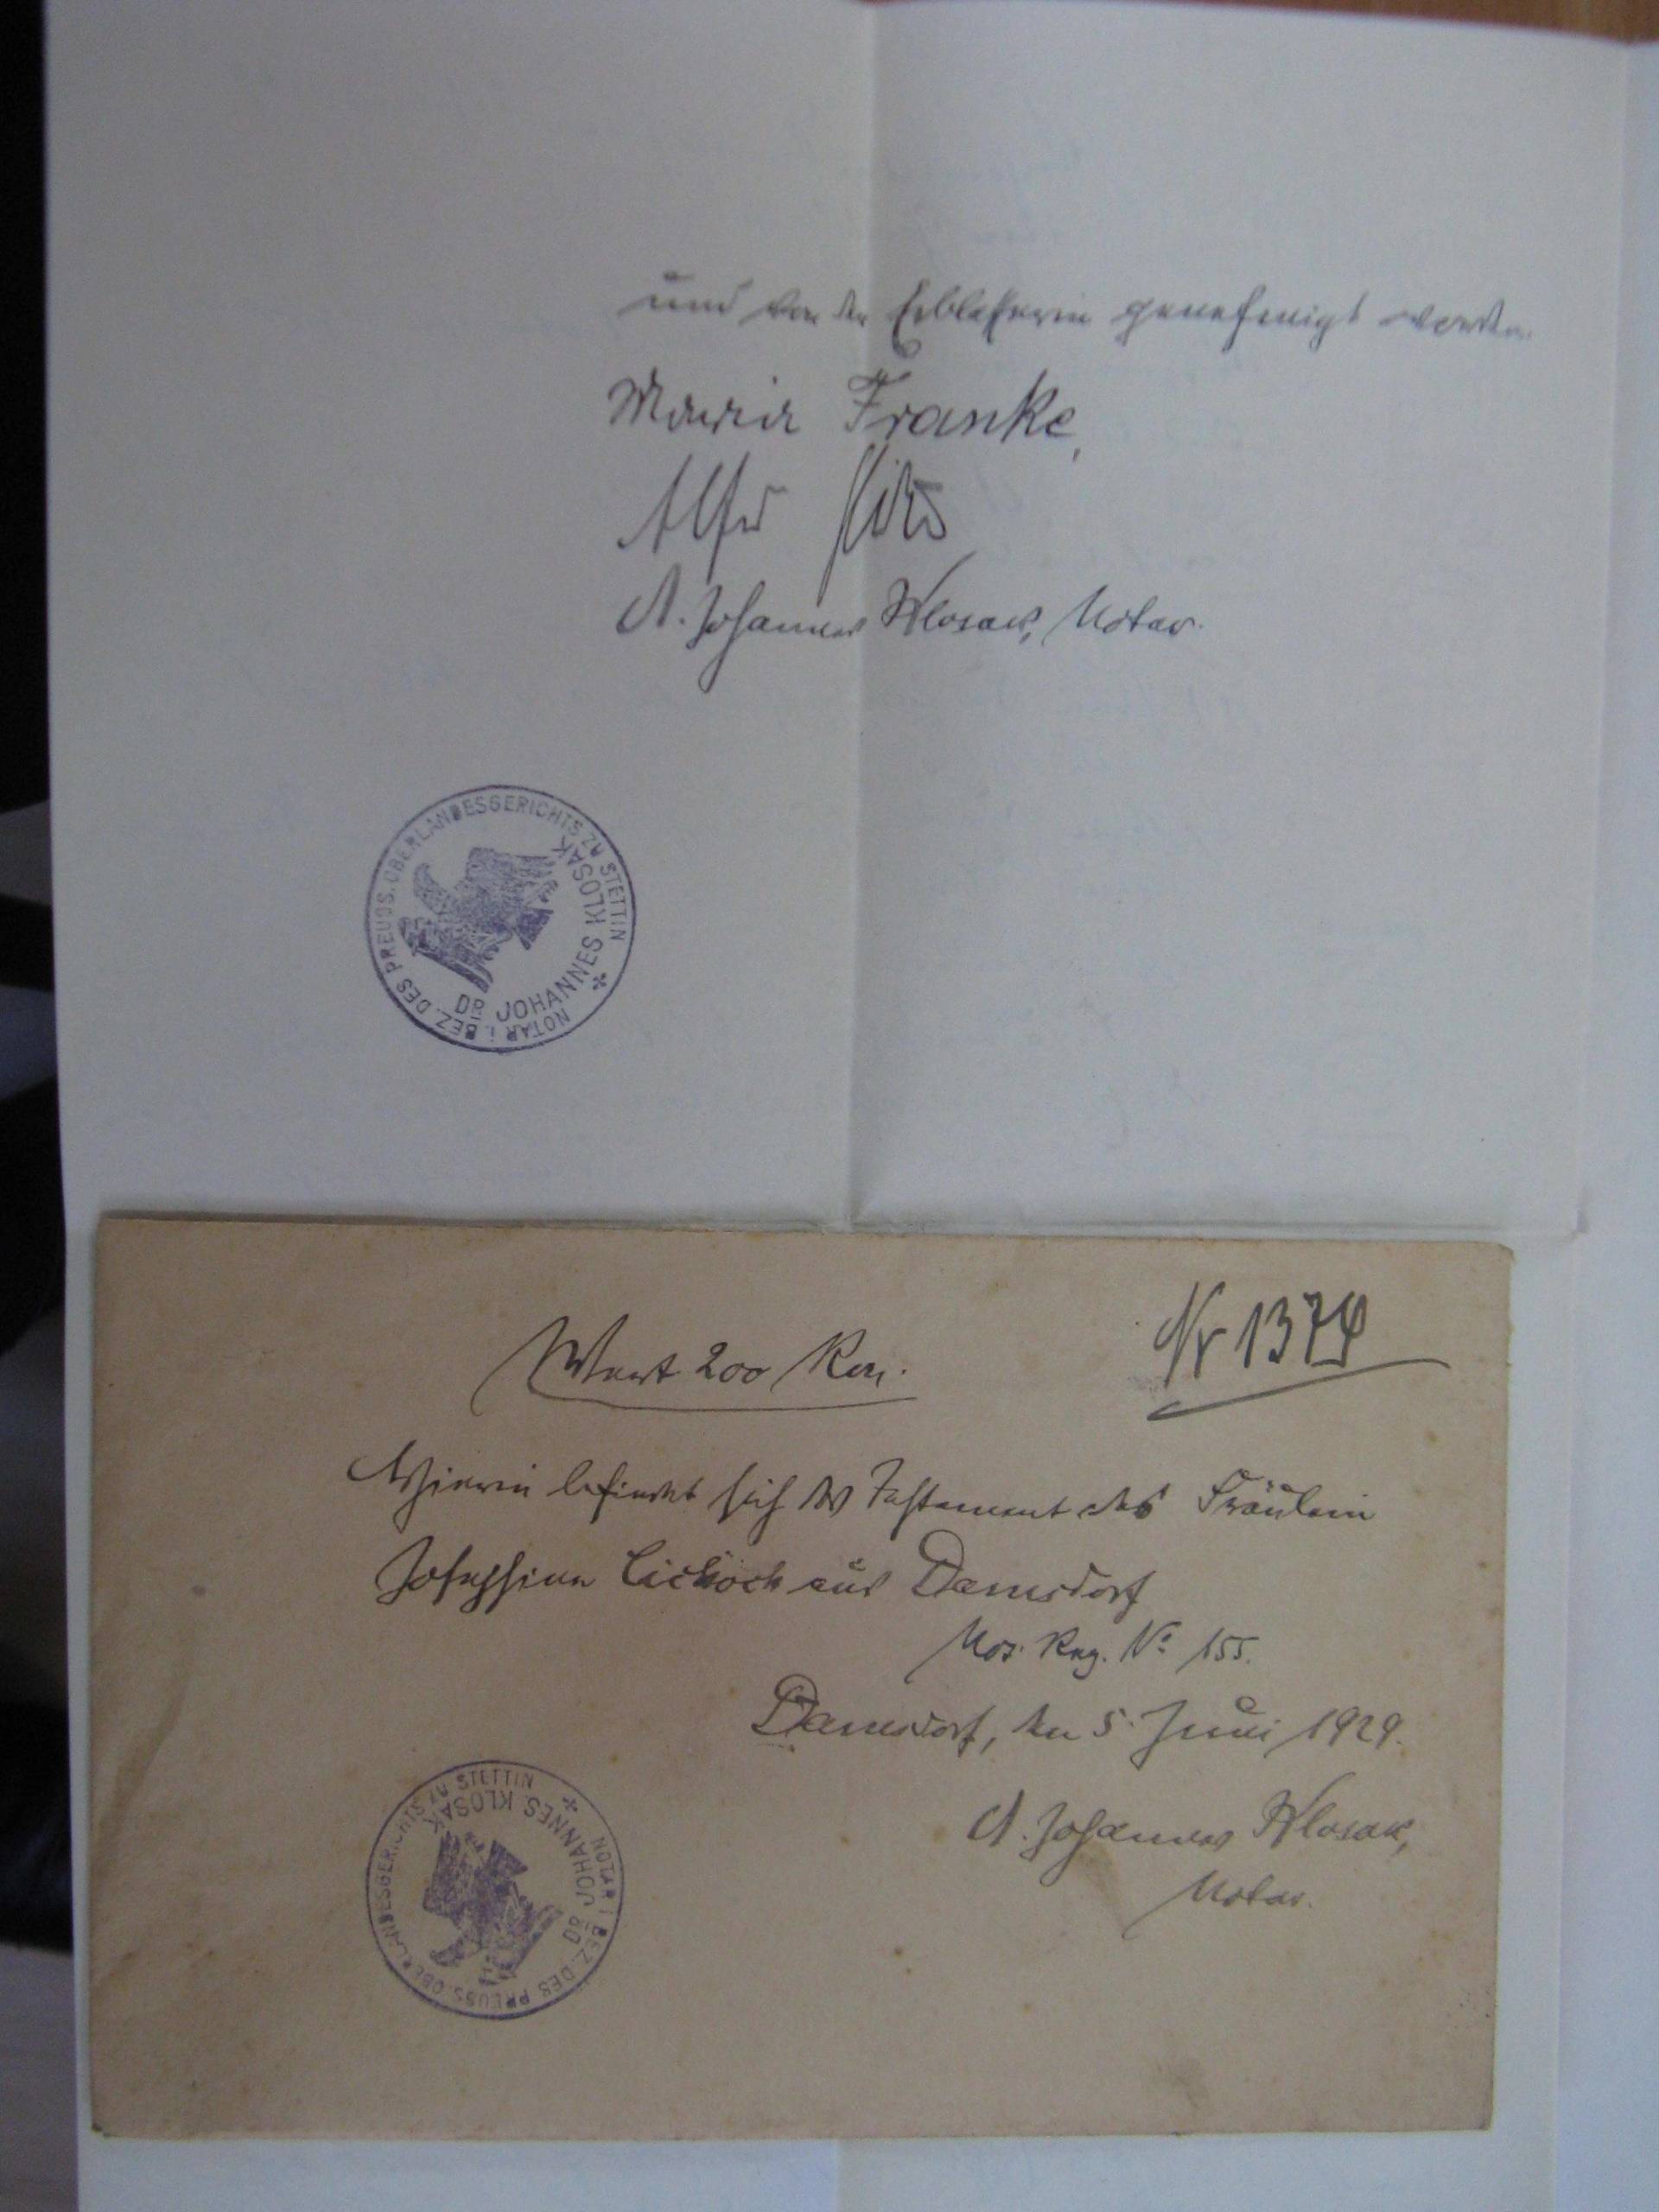 und von der Erblasserin genehmigt worden.
Maria Franke,
Dr. Johannes Klosak, Notar.
NOTAR i. BEZ. DES PREUSS. OBERLANDESGERICHTS ZU STETTIN
DR JOHANNES KLOSAK
Nr 1374
Wert 200 Rm.
Hierin befindet sich das Testament des Fräulein
Josephine aus Damsdorf
Not. Reg. No 155.
Damsdorf, den 5. Juni 1929.
Dr. Johannes Klosak,
Notar.
NOTAR i. BEZ. DES PREUSS. OBERLANDESGERICHTS ZU STETTIN
DR JOHANNES KLOSAK